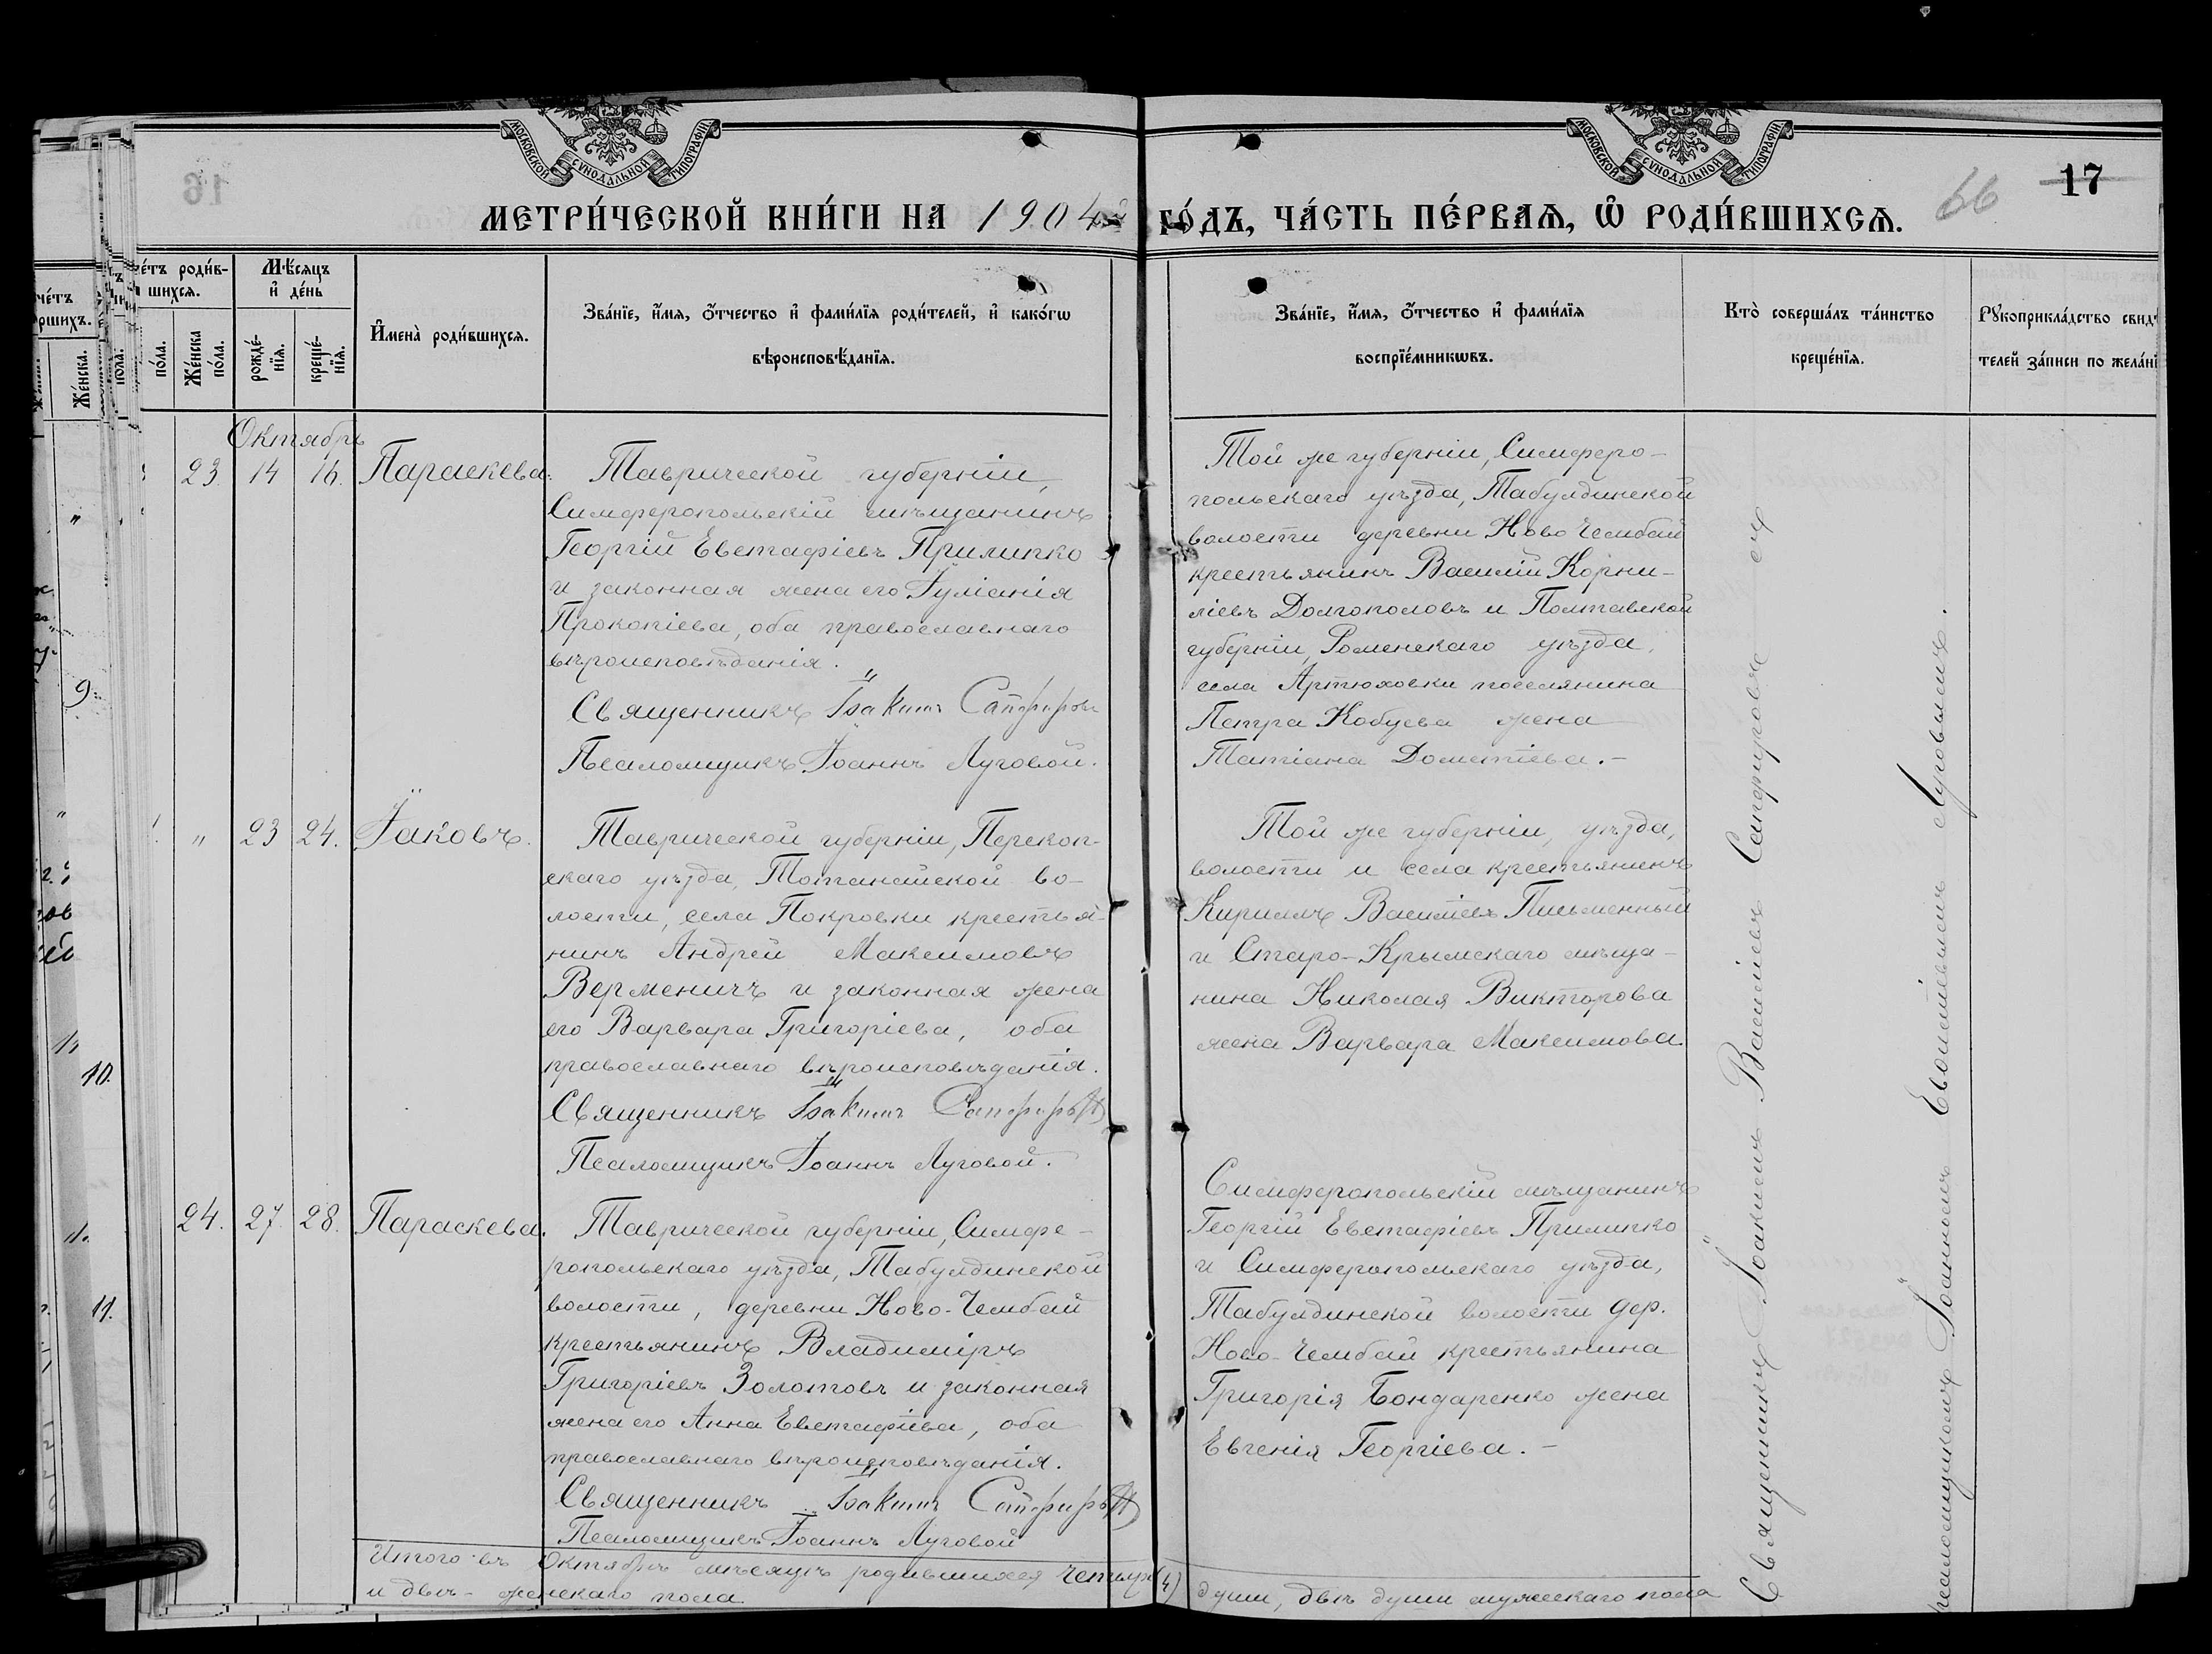 МОСКОВСКОЙ СУНОДАЛЬНОЙ ТИПОГРАФІИ
МОСКОВСКОЙ СУНОДАЛЬНОЙ ТИПОГРАФІИ
16
17
66
МЕТРИ́ЧЕСКОЙ КНИ́ГИ НА 1904 ГО́ДЪ, ЧА́СТЬ ПЕ́РВАѦ, Ѡ҆ РОДИ́ВШИХСѦ.
че́тъ роди́в-
шихсѧ.
по́ла.
Же́нска по́ла.
Мѣ́сѧцъ и҆ де́нь
рожде́-нїѧ.
креще́-нїѧ.
И҆мена̀ роди́вшихсѧ.
Зва́нїе, и҆́мѧ, ѻ҆́тчество и҆ фами́лїѧ роди́телей, и҆ како́гѡ
вѣроисповѣ́данїѧ.
Зва́нїе, и҆́мѧ, ѻ҆́тчество и҆ фами́лїѧ
воспрїе́мникѡвъ.
Кто̀ соверша́лъ та́инство
креще́нїѧ.
Рꙋкоприкла́дство свид
телей за́писи по жела́нї
че́тъ
ршихъ.
Же́нска.
Октябрь
23 14 16. Параскева.
Таврической губерніи,
Симферопольскій мѣщанинъ
Георгій Евстафіевъ Прилипко
и законная жена его Іуліанія
Прокопіева, оба православнаго
вѣроисповѣданія.
Священникъ Іоакимъ Сапфировъ
Псаломщикъ Іоаннъ Луговой.
Той же губерніи, Симферо-
польскаго уѣзда, Табулдинской
волости деревни Ново Чембай
крестьянинъ Василій Корни-
ліевъ Долгополовъ и Полтавской
губерніи, Роменскаго уѣзда,
села Артюховки поселянина
Петра Кобуева жена
Татіана Дометіева.-
" 23 24. Іаковъ.
Таврической губерніи, Перекоп-
скаго уѣзда, Тотанайской во-
лости, села Покровки крестья-
нинъ Андрей Максимовъ
Верменичъ и законная жена
его Варвара Григоріева, оба
православнаго вѣроисповѣданія.
Священникъ Іоакимъ Сапфировъ
Псаломщикъ Іоаннъ Луговой.
Той же губерніи, уѣзда,
волости и села крестьянинъ
Кириллъ Василіевъ Письменный
и Старо-Крымскаго мѣща-
нина Николая Викторова
жена Варвара Максимова.
24. 27. 28. Параскева.
Таврической губерніи, Симфе-
ропольскаго уѣзда, Табулдинской
волости, деревни Ново-Чембай
крестьянинъ Владиміръ
Григоріевъ Золотовъ и законная
жена его Анна Евстафіева, оба
православнаго вѣроисповѣданія.
Священникъ Іоакимъ Сапфировъ
Псаломщикъ Іоаннъ Луговой
Симферопольскій мѣщанинъ
Георгій Евстафіевъ Прилипко
и Симферопольскаго уѣзда,
Табулдинской волости дер.
Ново-Чембай крестьянина
Григорія Бондаренко жена
Евгенія Георгіева.-
Священникъ Іоакимъ Василіевъ Сапфировъ съ
псаломщикомъ Іоанномъ Луговымъ.
Итого въ Октябрѣ мѣсяцѣ родившихся четыре (4) души, двѣ души мужескаго пола
и двѣ - женскаго пола
9.
10.
11.